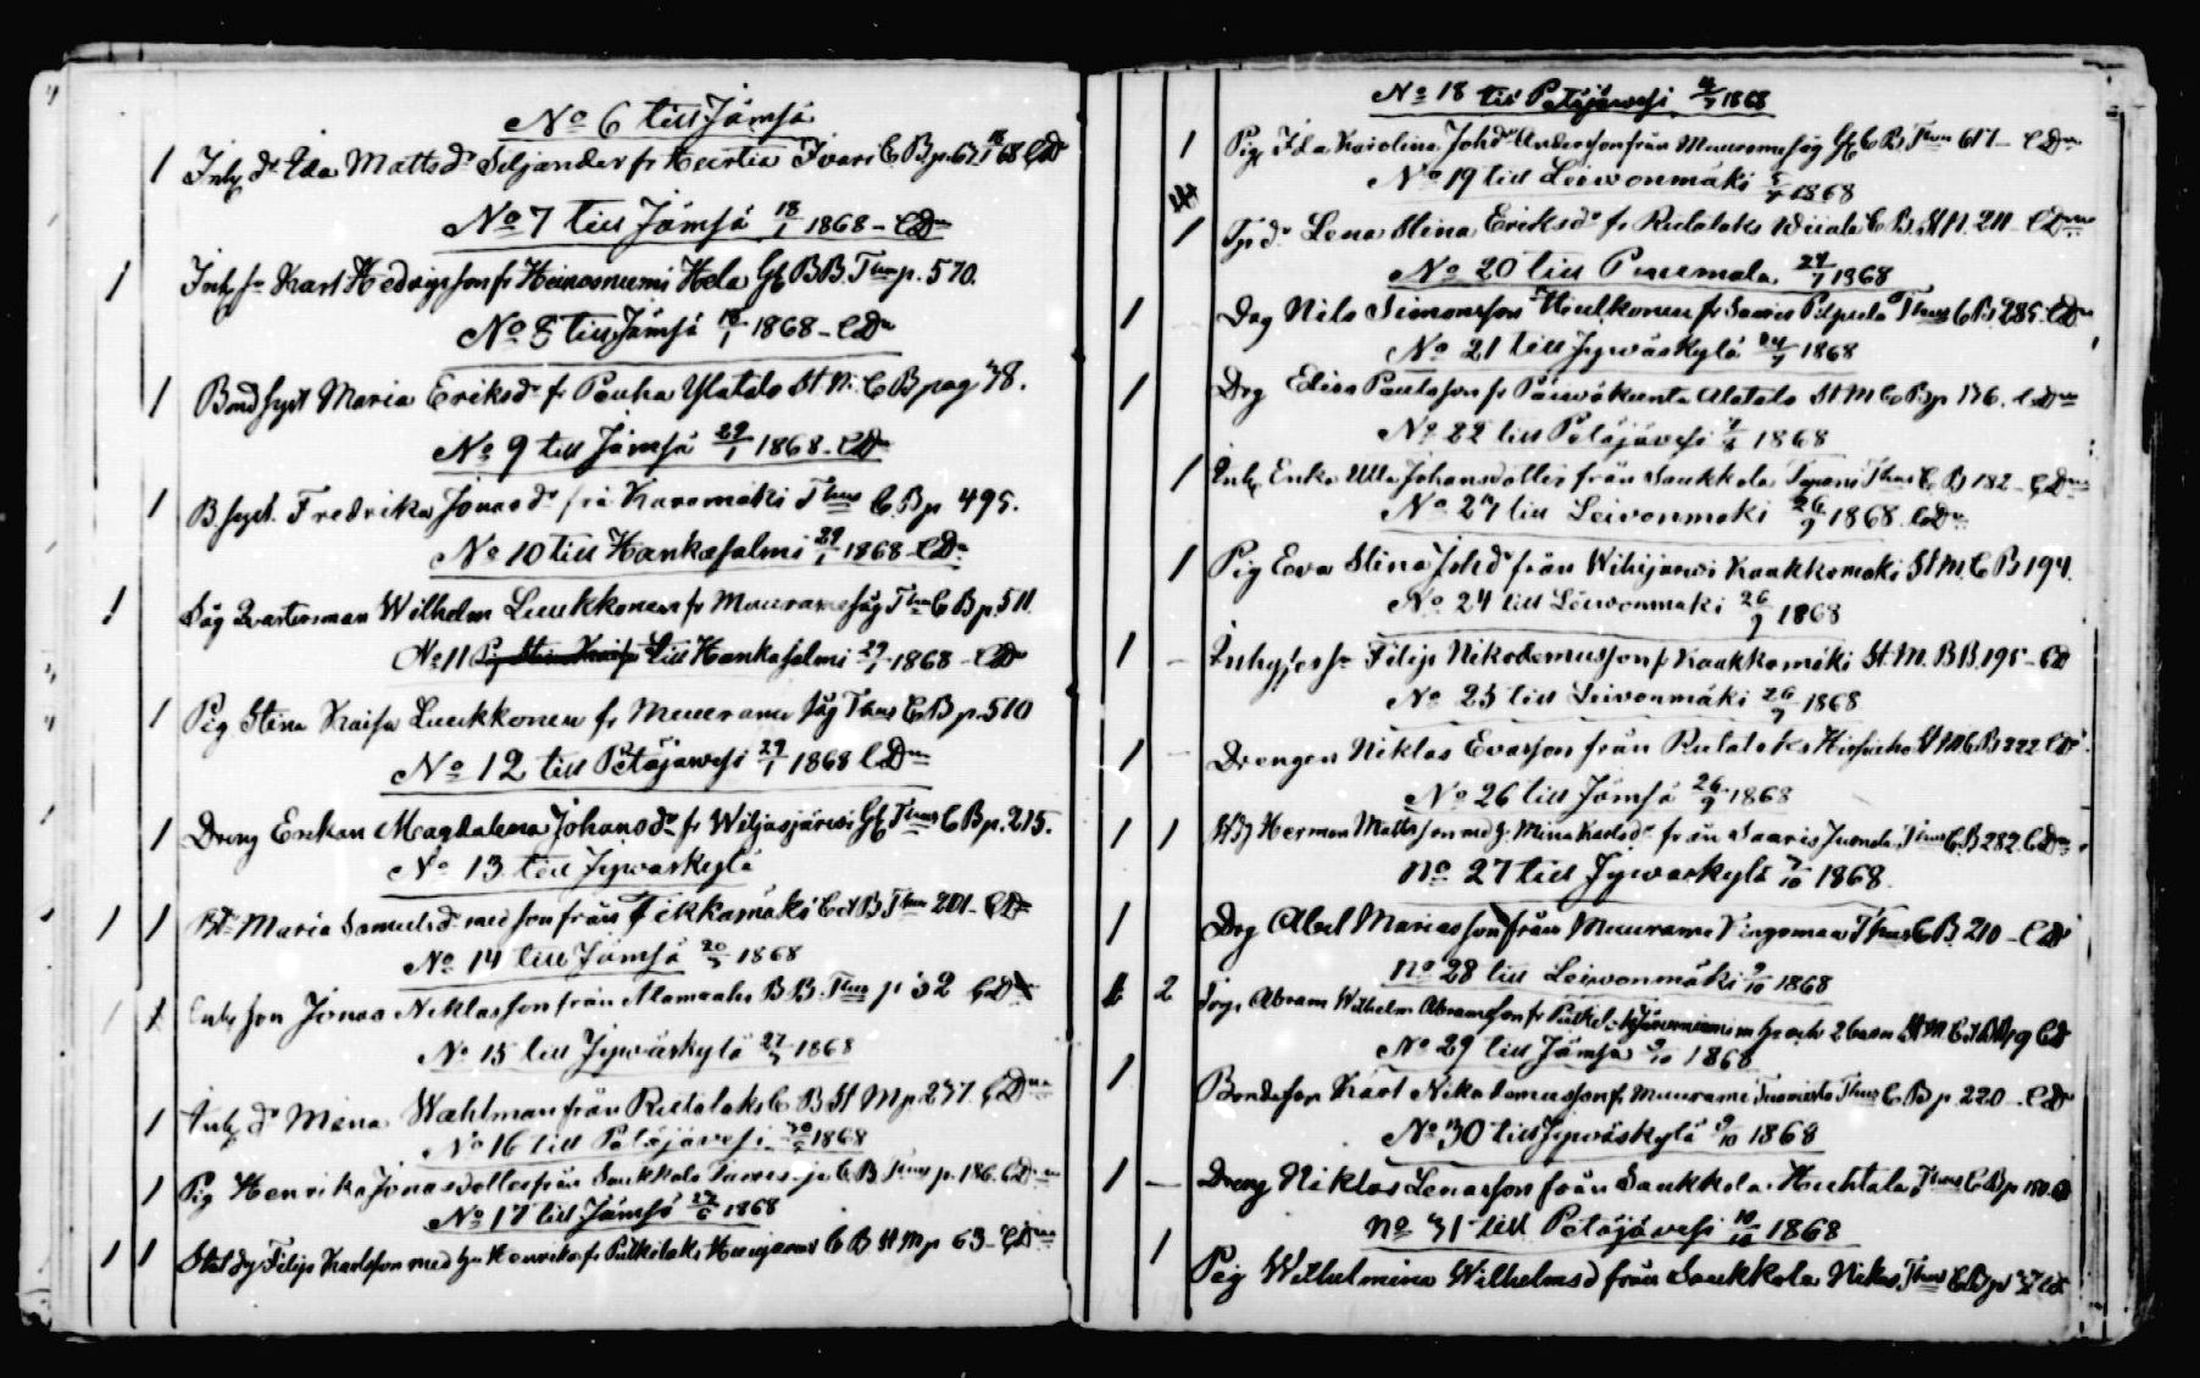 No 6 till Jämsä
1 Inh dr Eda Matts dr Siljander fr Heertia Ivari C B p. 67 18/1 68 CD
No 7 till Jämsä 18/1 1868 - CDn
1 Inh sn Karl Hedvigsson fr Heinosniemi Hela Gl BB. Thus p. 570.
No 8 till Jämsä 18/1 1868 - CDn
1 Bond hyst Maria Eriksdr fr Pauha Ylatalo St. M. C B pag 78.
No 9 till Jämsä 29/1 1868 - CDn
1 B. hyst. Fredrika Jonasdr frå Karamäki Thus C. B p 495.
No 10 till Hankasalmi 29/1 1868 - CDn
1 Såg Qvartersman Wilhelm Luukkonen fr Muurame såg Thus C B p. 511.
No 11 till Hankasalmi 29/1 1868 - CDn
1 Pig Stina Kaisa Luukkonen fr Muurame såg Thus C B p. 510
No 12 till Petäjävesi 29/1 1868 CDn
1 Dreng Enkan Magdalena Johansdr fr Wiljasjärvi Gl Thus C B p. 215.
No 13 till Jyväskylä
1 1 Maria Samuelsdr med son från Tikkamäki Thus 201 - CDn
No 14 till Jämsä 20/3 1868
1 1 Inh son Jonas Niklasson från B B. Thus p 32 CDn
No 15 till Jyväskylä 27/3 1868
1 Inh dr Mina Wahlman från Rutalaks C B St M p 237. CDn
No 16 till Petäjävesi 1868
1 Pig Henrika Jonasdotter från Saukkola C B Thus p. 186. CDn
No 17 till Jämsä 1868
1 1 Filip Karlsson med h. Henrika fr Putkilaks C B St M p 63 - CDn
No 18 till Petäjävesi 4/7 1868
1 Pig Ida Karolina Johdr Andersson från Muurame såg Gl C B Thus 617 - CDn
No 19 till Leivonmäki 1868
1 Lena Stina Eriksdr fr Rutalaks C B. St M. 211 - CDn
No 20 till Puumala 24/7 1868
1 Drg Nils Simonsson Hulkonen fr Saaris Pilpula Thus C B 285. CDn
No 21 till Jyväskylä 24/7 1868
1 Drg Elias Paulsson fr Päiväkunta Alatalo St M C B p 176. CDn
No 22 till Petäjävesi 1868
1 Inh Enka Ulla Johansdotter från Saukkola Thus C B 182 - CDn
No 23 till Leivonmäki 26/9 1868 CDn
1 Pig Eva Stina Johdr från Wihijärvi Kaakkomäki St M. C B 194.
No 24 till Leivonmäki 26/9 1868
1 – Filip Nikodemusson fr Kaakkomäki St. M. B B. 195 - CD
No 25 till Leivonmäki 26/9 1868
1 – Drengen Niklas Evasson från Rutalaks St M C B 222 CD
No 26 till Jämsä 26/9 1868
1 1 Herman Mattsson med h. Mina Karlsdr från Saaris Juonela Thus C B 282. CDn
No 27 till Jyväskylä 1868.
1 Drg Abel Mariasson från Muurame Kingsmaa Thus C B. 210 - CDn
No 28 till Leivonmäki 9/10 1868
2 Abram Wilhelm Abramsson fr m h och 2 barn St M. CD
No 29 till Jämsä 9/10 1868
1 Bondeson Karl Nikodemusson fr Muurame Tuomisto Thus C B p. 220 - CDn
No 30 till Jyväskylä 9/10 1868
1 – Dreng Niklas Lenasson från Saukkola Huhtala Thus C B p 180. CD
No 31 till Petäjävesi 10/10 1868
1 Pig Wilhelmina Wilhelmsd från Saukkola Nikus. Thus C B p